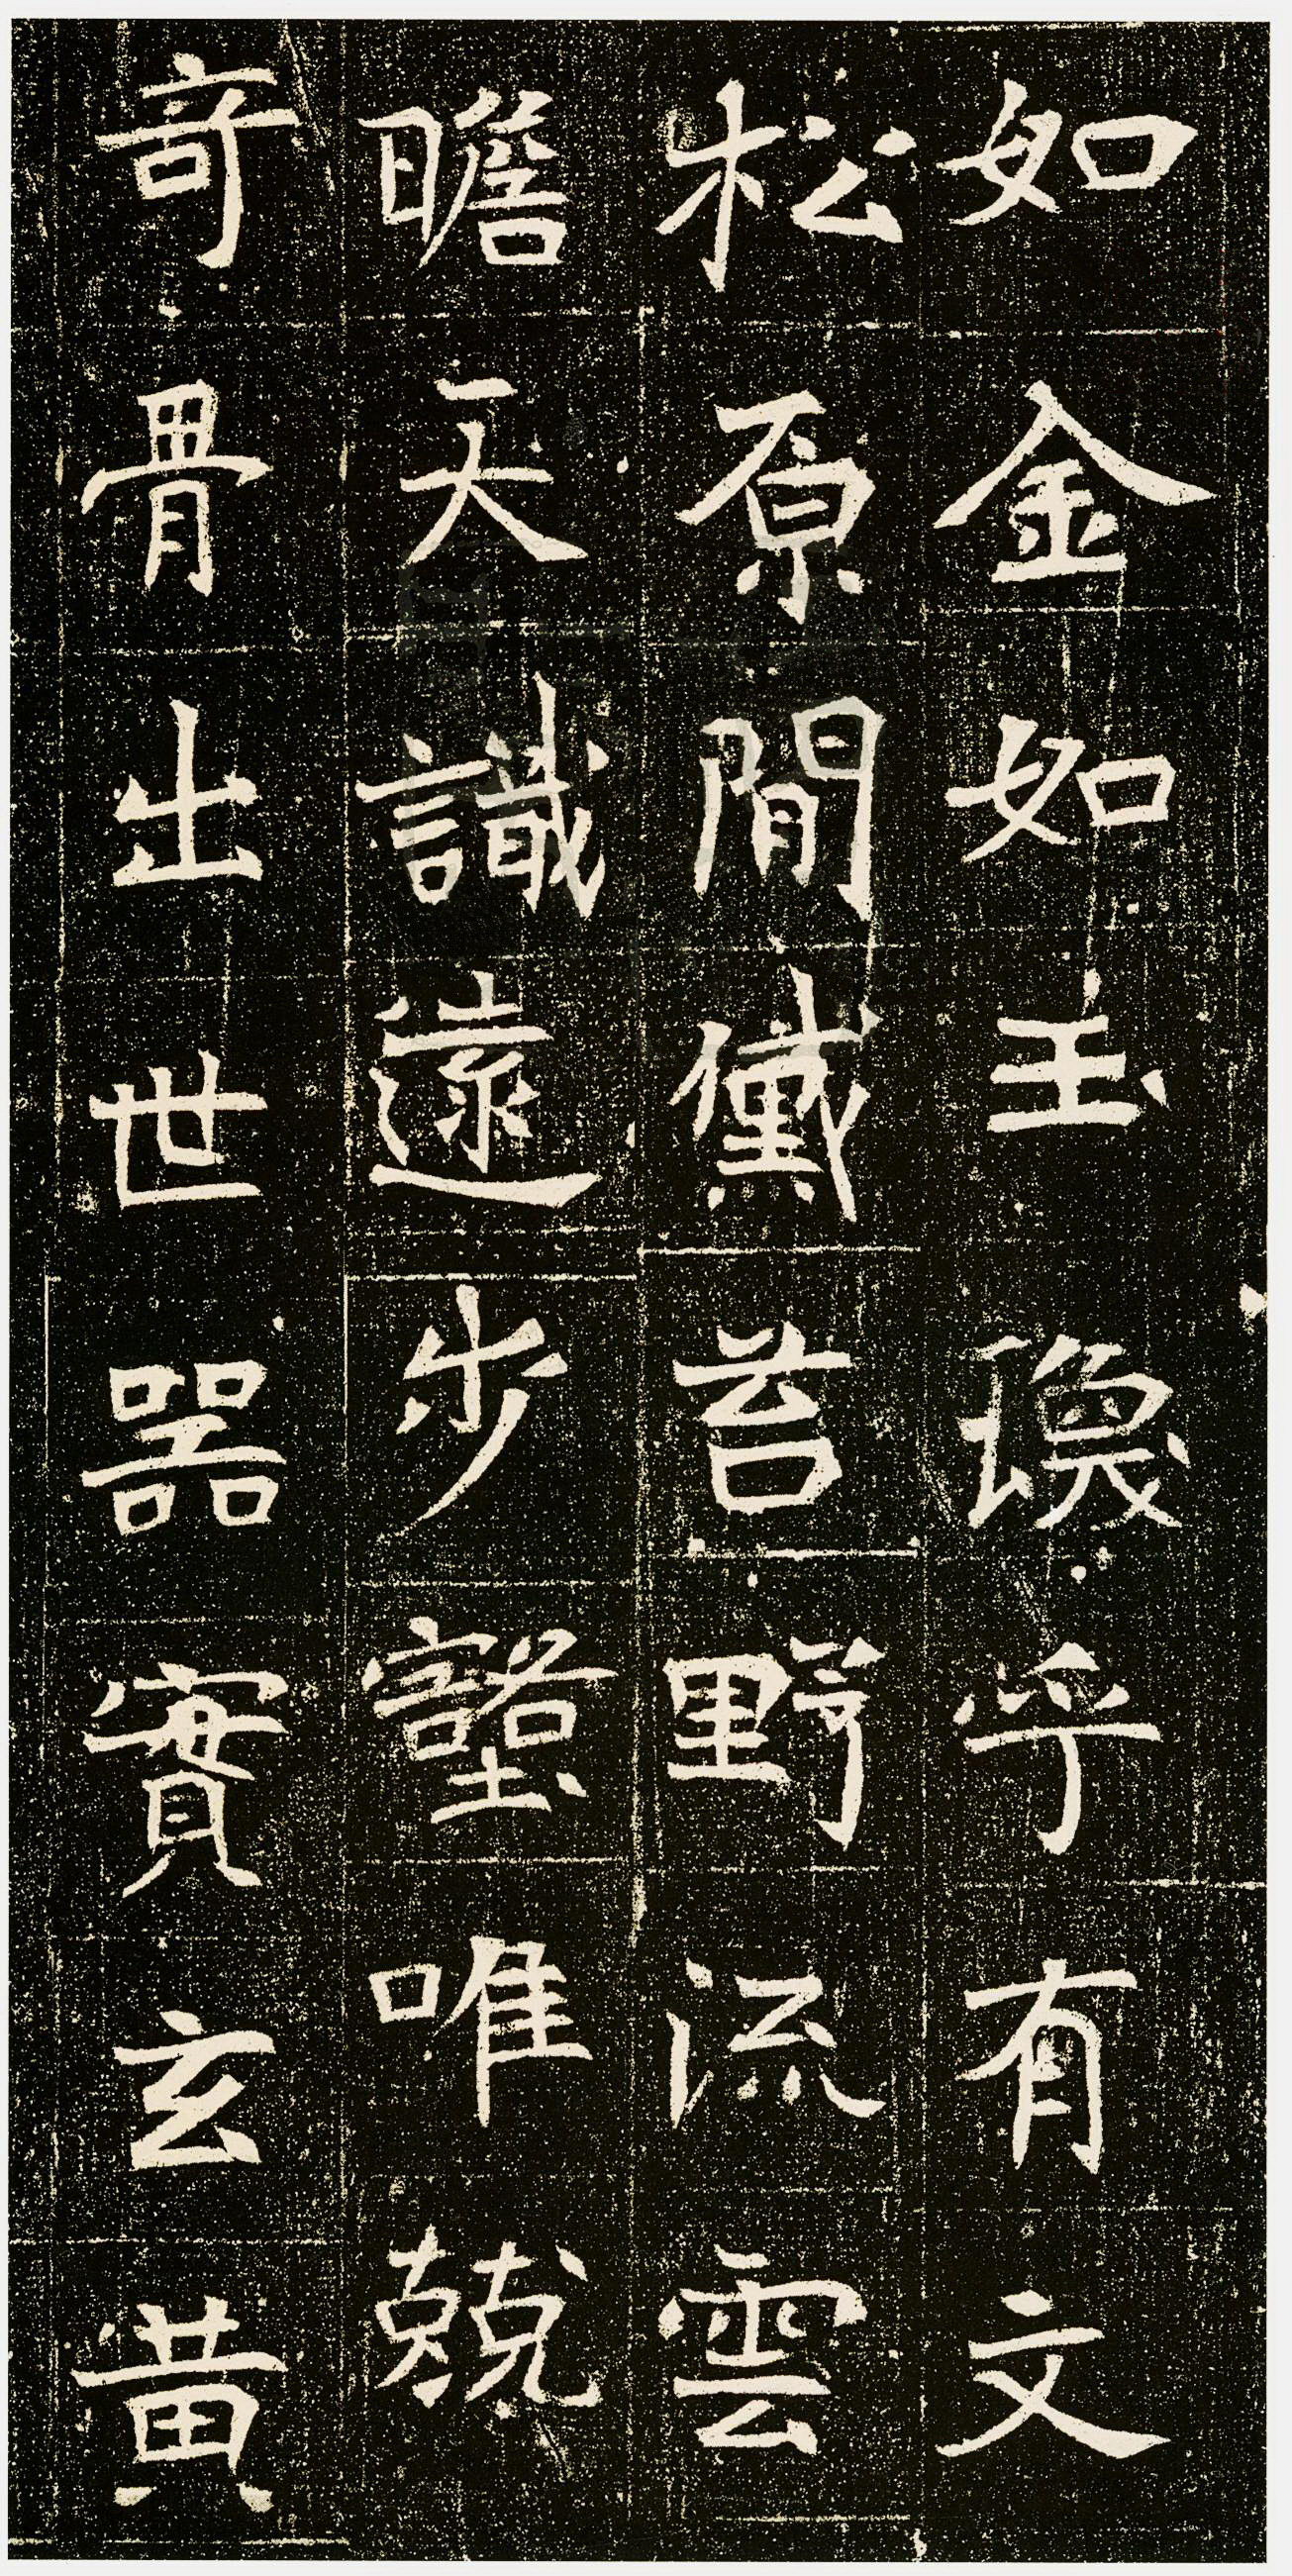 如金如玉瑍乎有文
松原間黛苔野流雲
瞻天識遠步壑唯兢
奇骨出世器實玄黃